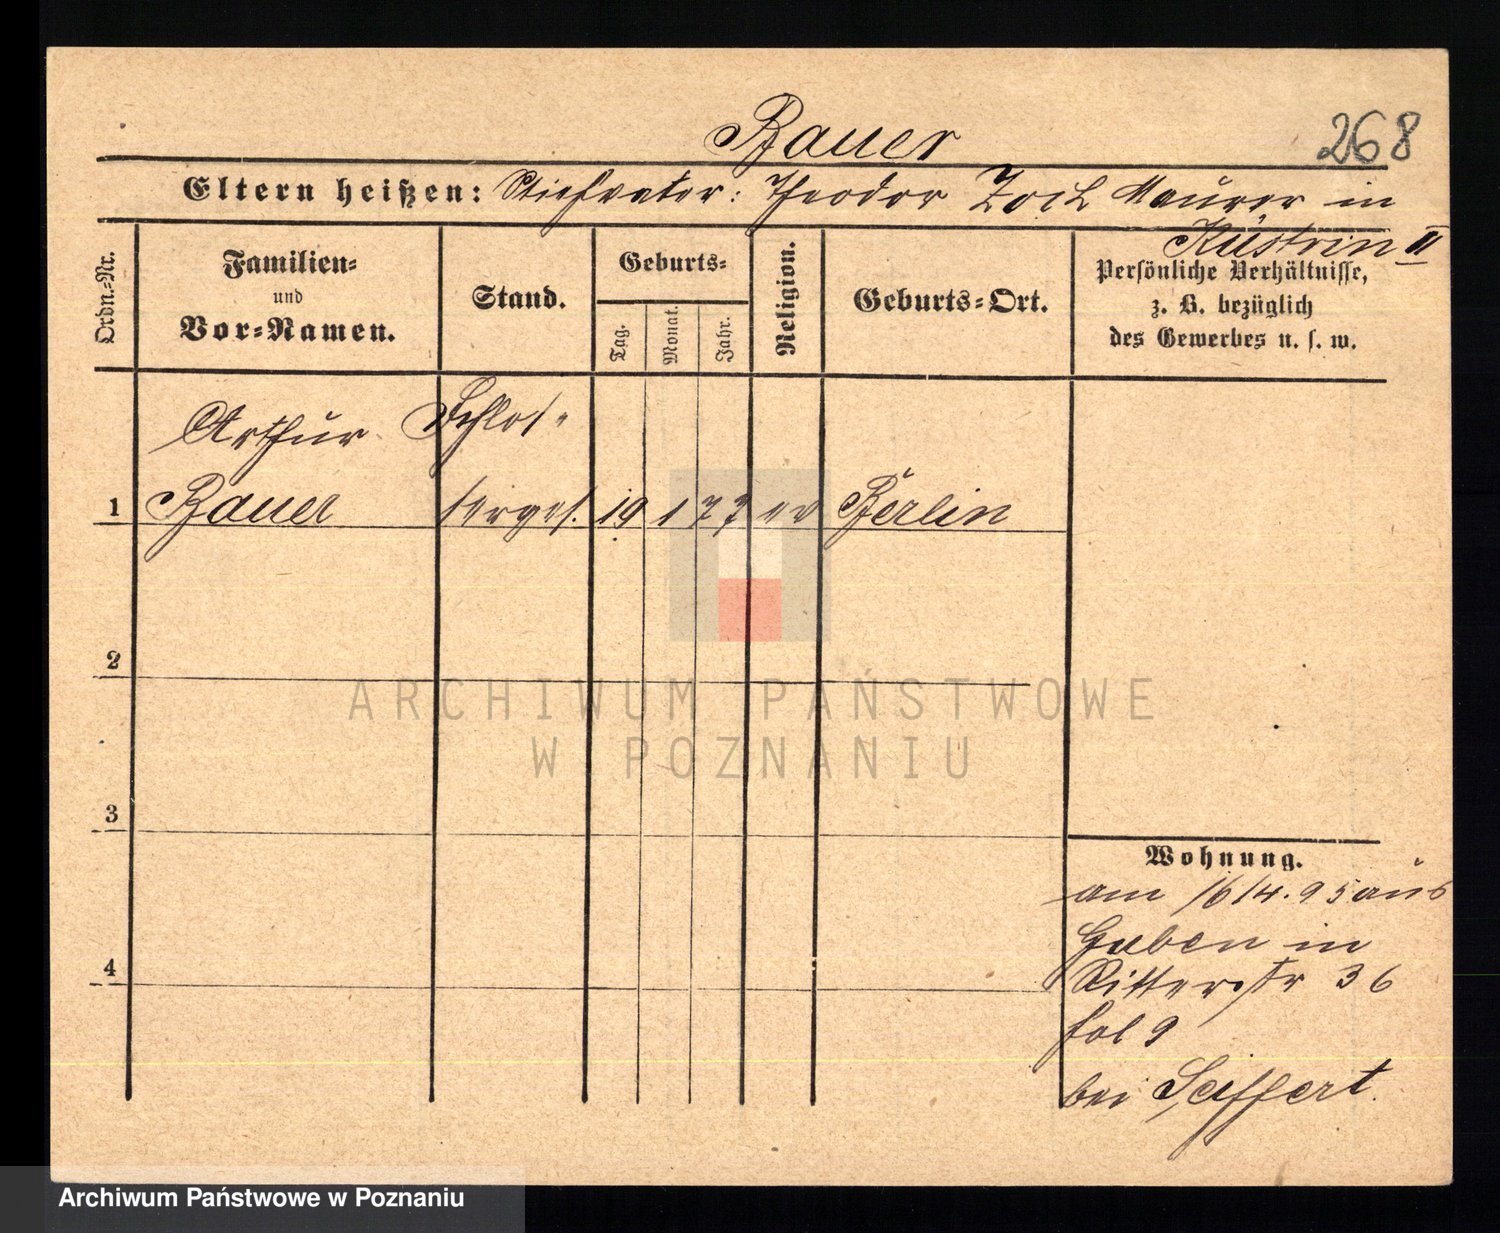 Bauer
268
Eltern heißen: Stiefvater: Theodor Zoch Maurer in
Küstrin II
Ordn.-Nr.
Familien-
und
Vor-Namen.
Stand.
Geburts-
Tag.
Monat.
Jahr.
Religion.
Geburts-Ort.
Persönliche Verhältnisse,
z. B. bezüglich
des Gewerbes u. s. w.
Arthur Schlos-
1 Bauer serges. 19 1 77 ev Berlin
2
3
4
Wohnung.
am 16/4. 95 aus
Guben in
Ritterstr 36
fol 9
bei Seiffert.
ARCHIWUM PAŃSTWOWE
W POZNANIU
Archiwum Państwowe w Poznaniu